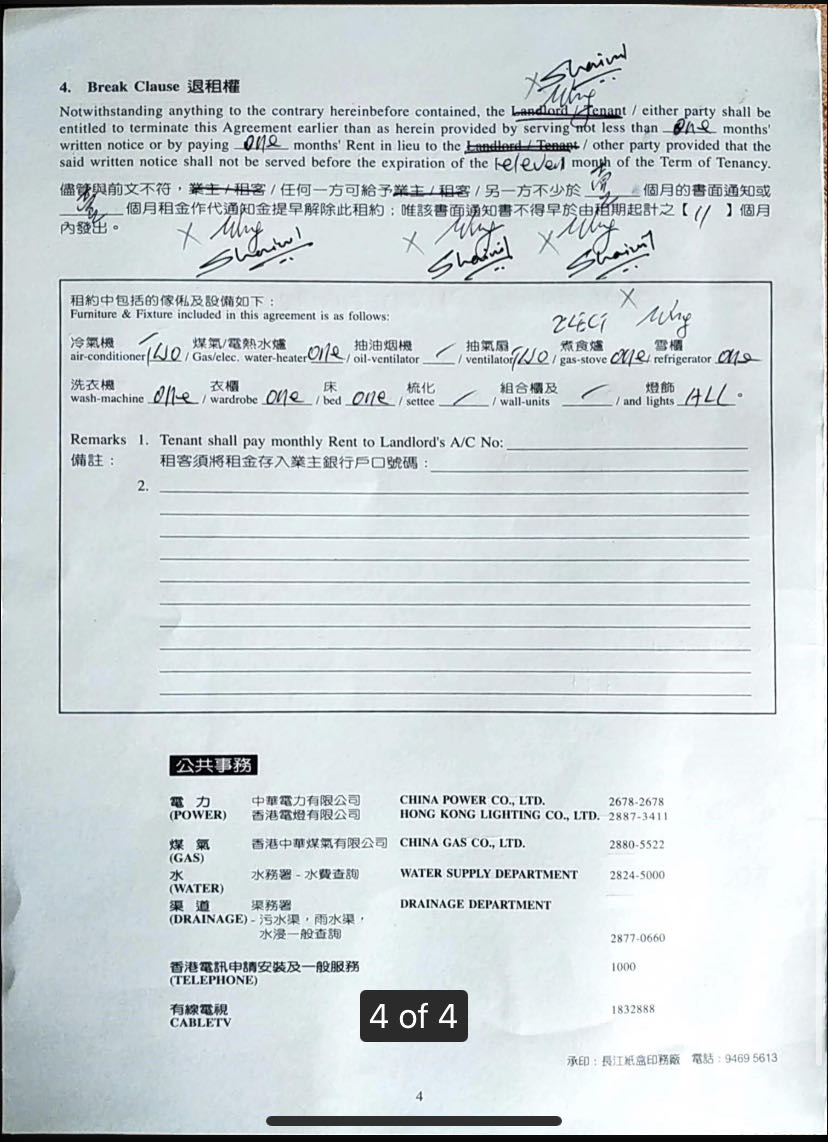 4. Break Clause 退租權
Notwithstanding anything to the contrary hereinbefore contained, the Landlord / Tenant / either party shall be
entitled to terminate this Agreement earlier than as herein provided by serving not less than one months'
written notice or by paying one months' Rent in lieu to the Landlord / Tenant / other party provided that the
said written notice shall not be served before the expiration of the month of the Term of Tenancy.
儘管與前文不符，業主 / 租客 / 任何一方可給予業主 / 租客 / 另一方不少於 壹 個月的書面通知或
壹 個月租金作代通知金提早解除此租約；唯該書面通知書不得早於由租期起計之【 11 】個月
內發出。
租約中包括的傢俬及設備如下：
Furniture & Fixture included in this agreement is as follows:
ELECT
冷氣機 煤氣/電熱水爐 抽油烟機 抽氣扇 煮食爐 雪櫃
air-conditioner TWO / Gas/elec. water-heater one / oil-ventilator / ventilator TWO / gas-stove one / refrigerator one
洗衣機 衣櫃 床 梳化 組合櫃及 燈飾
wash-machine one / wardrobe one / bed one / settee / wall-units / and lights ALL 。
Remarks 1. Tenant shall pay monthly Rent to Landlord's A/C No:
備註： 租客須將租金存入業主銀行戶口號碼：
2.
公共事務
電 力 中華電力有限公司 CHINA POWER CO., LTD. 2678-2678
(POWER) 香港電燈有限公司 HONG KONG LIGHTING CO., LTD. 2887-3411
煤 氣 香港中華煤氣有限公司 CHINA GAS CO., LTD. 2880-5522
(GAS)
水 水務署 - 水費查詢 WATER SUPPLY DEPARTMENT 2824-5000
(WATER)
渠 道 渠務署 DRAINAGE DEPARTMENT
(DRAINAGE) - 污水渠，雨水渠，
水浸一般查詢 2877-0660
香港電訊申請安裝及一般服務 1000
(TELEPHONE)
有線電視 1832888
CABLETV
4 of 4
承印：長江紙盒印務廠 電話：9469 5613
4